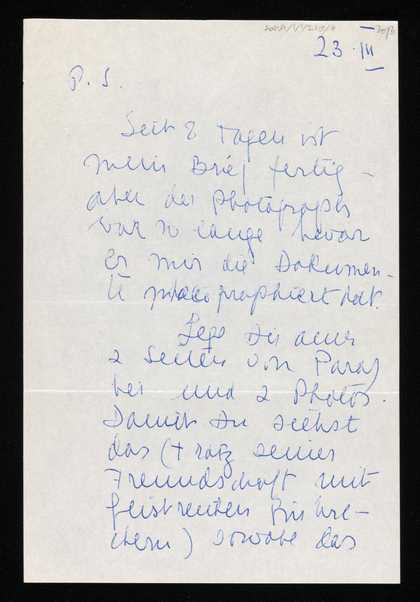 23. III
P. S.
Seit 8 Tagen ist
mein Brief fertig –
aber der Photograph
war so lange bevor
er mir die Dokumen-
te photographiert hat.
Lege Dir auch
2 Seiten von
bei und 2 Photos.
Damit Du siehst
das (trotz seiner
Freundschaft mit
geistreichen
) sowohl das